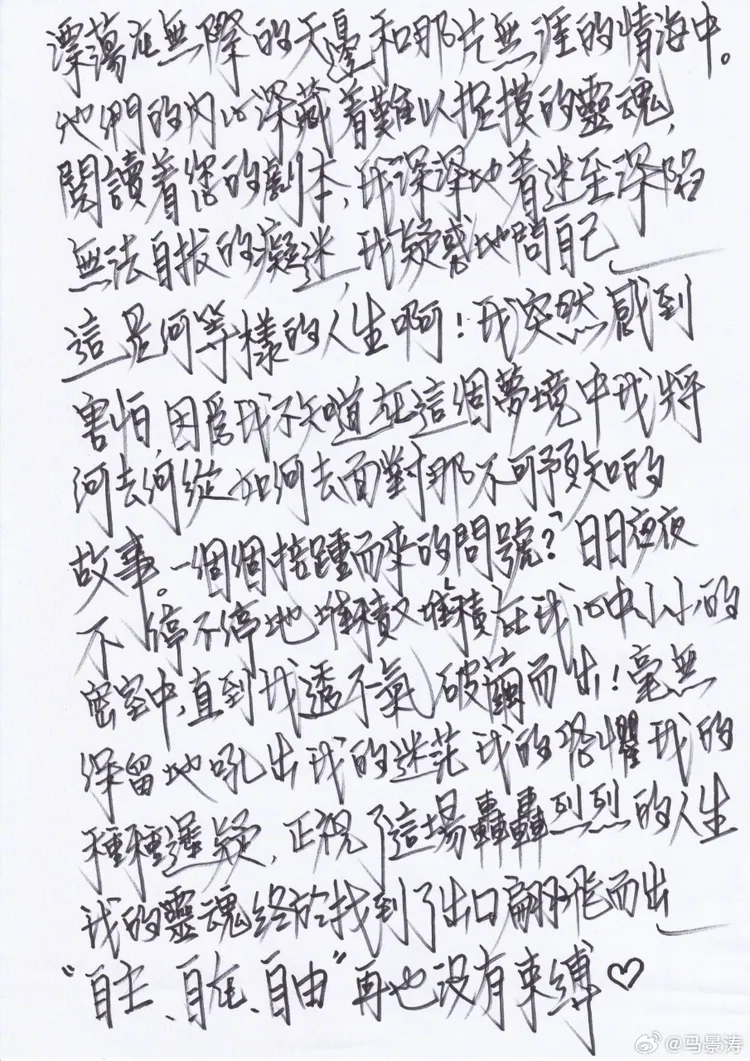 漂蕩在無際的天邊和那片無涯的情海中。
他們的内心深藏着難以捉摸的靈魂,
閱讀着您的劇本,我深深地着迷至深陷
無法自拔的癡迷,我疑惑地問自己
這是何等樣的人生啊!我突然感到
害怕,因爲我不知道在這個夢境中我將
何去何從 如何去面對那不可預知的
故事。一個個接踵而來的問號?日日夜夜
不停不停地堆積又堆積在我心中小小的
密室中,直到我透不氣 破繭而出!毫無
保留地吼出我的迷茫 我的恐懼 我的
種種遲疑,正視了這場轟轟烈烈的人生
我的靈魂終於找到了出口翩飛而出
“自主、自在、自由”再也没有束縛♡
@马景涛